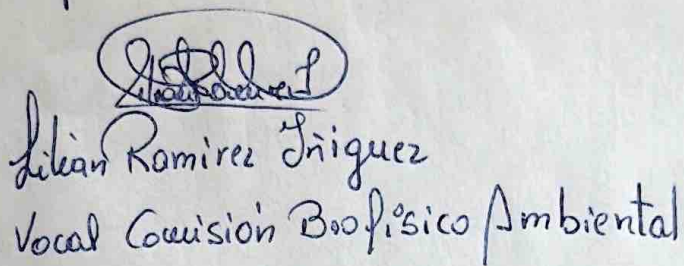 Lilian Ramirez Iñiguez
Vocal Comisión Biofísico Ambiental